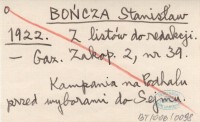 BOŃCZA Stanisław
1922. Z listów do redakcji.
— Gaz. Zakop. 2, nr 39.
Kampania na Podhalu
przed wyborami do Sejmu.
BT/006/0098